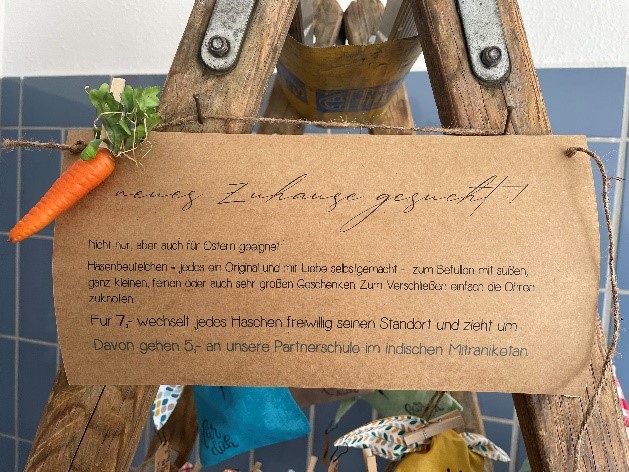 neues Zuhause gesucht!
Nicht nur, aber auch für Ostern geeignet!
Hasenbeutelchen - jedes ein Original und mit Liebe selbstgemacht - zum Befüllen mit süßen,
ganz kleinen, feinen oder auch sehr großen Geschenken. Zum Verschließen einfach die Ohren
zuknoten.
Für 7,- wechselt jedes Häschen freiwillig seinen Standort und zieht um
Davon gehen 5,- an unsere Partnerschule im indischen Mitraniketan
für
dich